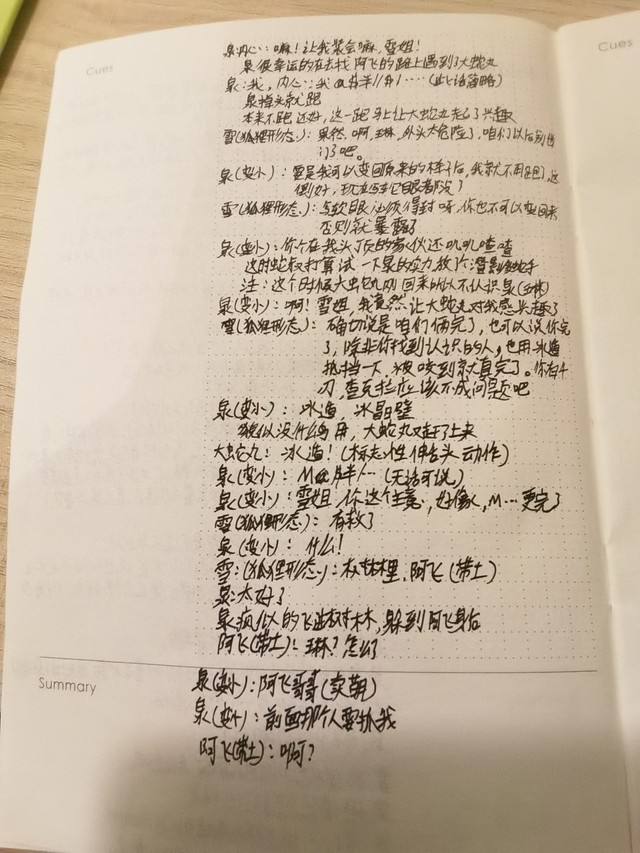 Cues
Cues
泉内心:嘛!让我装会嘛,雪姐!
泉很幸运的在去找阿飞的路上遇到了大蛇丸
泉:我,内心:我@&羊//丰|‥‥(此话省略)
泉掉头就跑
本来不跑还好,这一跑马上让大蛇丸起了兴趣
雪(狐狸形态):果然,啊,琳,外头太危险了,咱们以后别出
门了吧。
泉(变小):要是我可以变回原来的样子后,我就不用跑了,这
倒好,现在写轮眼都没了
雪(狐狸形态):写轮眼必须得封呀,你也不可以变回来
否则就暴露了
泉(变小):你个在我头顶的家伙还叽叽喳喳
这时蛇叔打算试一下泉的实力放了潜影蛇手
注:这个时候大蛇丸刚回来所以不认识泉
泉(变小):啊!雪姐,我竟然让大蛇丸对我感兴趣了
雪(狐狸形态):确切说是咱们俩完了,也可以说你完
了,除非你找到认识的人,也用冰遁
抵挡一下,被咬到就真完了。你有千
刃,查克拉应该不成问题吧
泉(变小):冰遁,冰晶壁
貌似没什么用,大蛇丸又赶了上来
大蛇丸:冰遁!(标志性伸舌头动作)
泉(变小):M@&羊|‥(无话可说)
泉(变小):雪姐,你这个主意,好像,M‥‥更完了
雪(狐狸形态):有救了
泉(变小):什么!
雪:(狐狸形态):树林里,阿飞(带土)
泉:太好了
泉疯似的飞进树林,躲到阿飞身后
阿飞(带土):琳?怎么了
Summary
泉(变小):阿飞哥哥(卖萌)
泉(变小):前面那个人要抓我
阿飞(带土):啊?